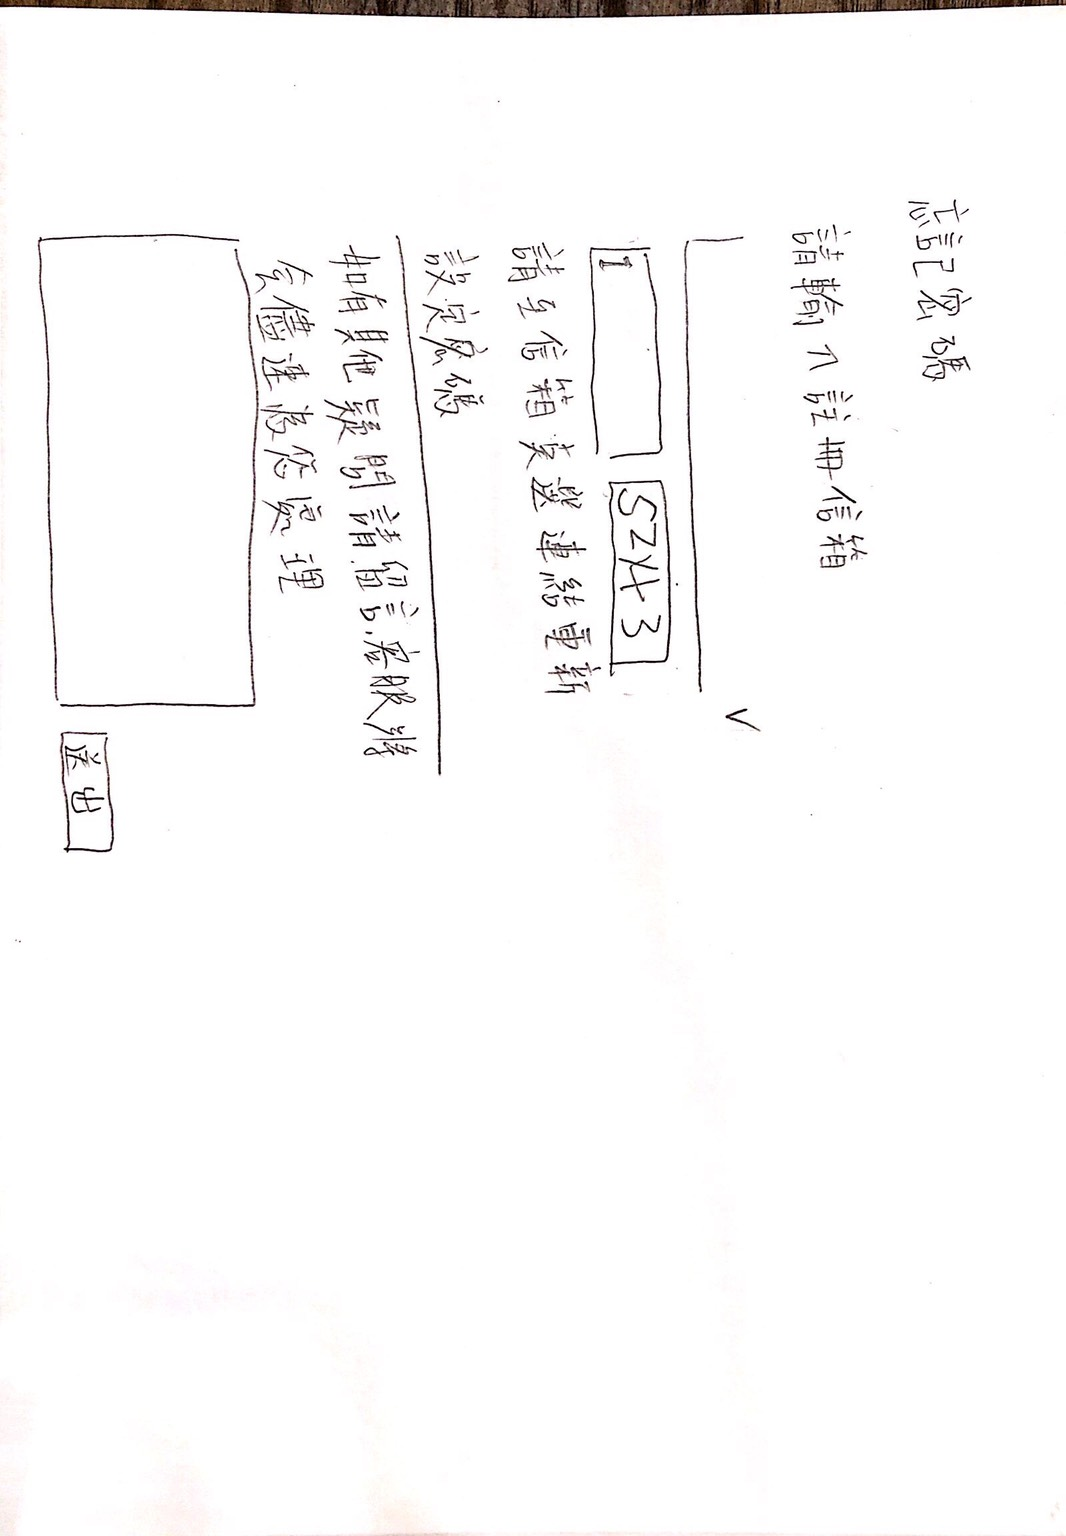 忘記密碼
請輸入註冊信箱
V
I
SZY43
請至信箱英選連結重新
設定密碼
如有其他疑問請留言客服將
会儘速為您處理
送出